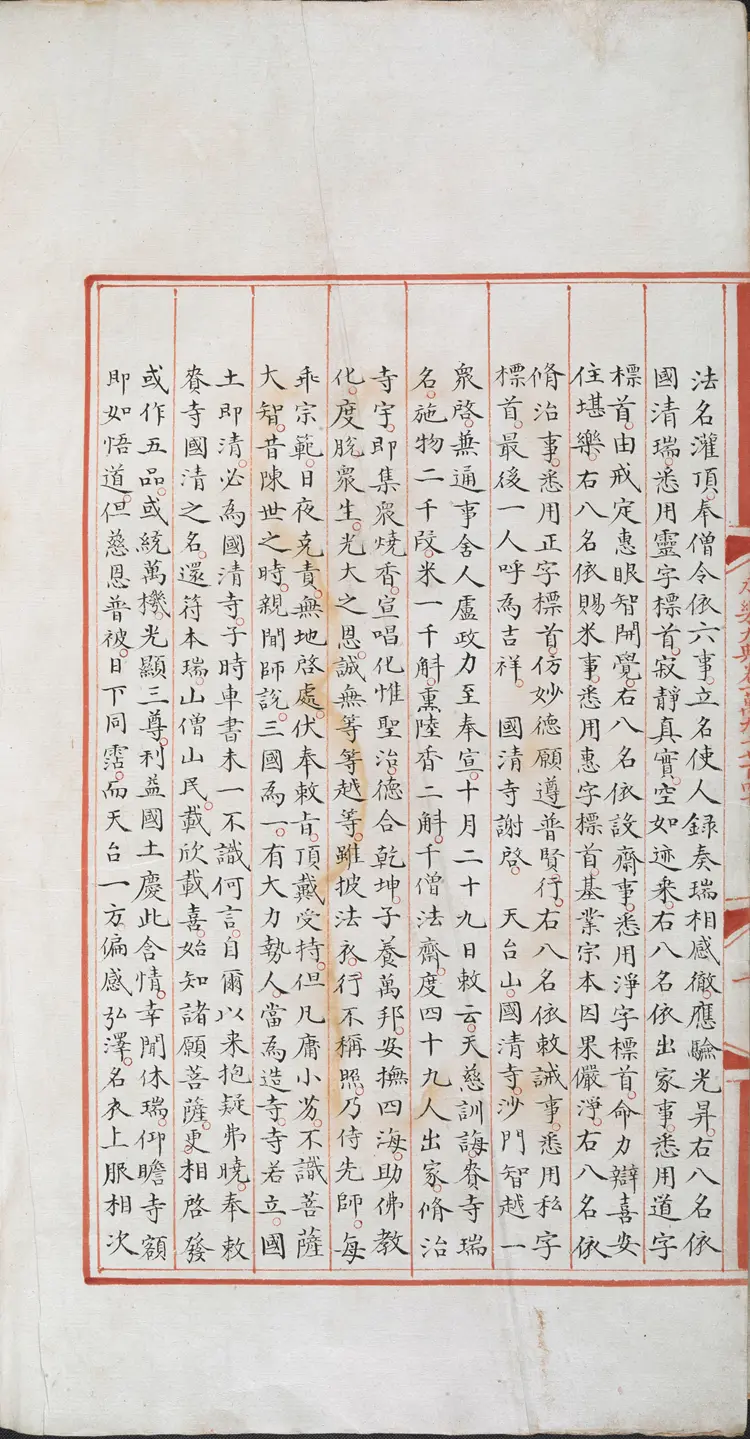 法名灌頂。奉僧令依六事。立名使人録奏瑞相感徹。應驗光昇。右八名依
國清瑞。悉用靈字標首。寂靜真實。空如迹乘。右八名依出家事。悉用道字
標首。由戒定惠眼智開覺。右八名依設齋事。悉用淨字標首。命力辯喜安
住堪樂。右八名依賜米事。悉用惠字標首。基業宗本因果儼淨。右八名依
脩治事。悉用正字標首。仿妙德願遵普賢行。右八名依敕誡事。悉用私字
標首。最後一人呼為吉祥。 國清寺謝啓。 天台山。國清寺。沙門智越一
衆啓。兼通事舍人盧政力至奉宣。十月二十九日敕云。天慈訓誨。賚寺瑞
名。施物二千段。米一千斛。熏陸香二斛。千僧法齋。度四十九人出家。脩治
寺宇。即集衆燒香。宣唱化惟聖治。德合乾坤。子養萬邦。安撫四海。助佛教
化。度脫衆生。光大之恩。誠無等等越等。雖披法衣。行不稱照。乃侍先師。每
乖宗範。日夜克責。無地啓處。伏奉敕旨。頂戴受持。但凡庸小劣。不識菩薩
大智。昔陳世之時。親聞師說。三國為一。有大力勢人。當為造寺。寺若立。國
土即清。必為國清寺。于時車書未一不識何言。自爾以来抱疑弗曉。奉敕
賚寺國清之名。還符本瑞。山僧山民。載欣載喜。始知諸願菩薩。更相啓發
或作五品。或統萬機。光顯三尊。利益國土慶此含情。幸聞休瑞。仰瞻寺額
即如悟道。但慈恩普被。日下同霑。而天台一方。偏感弘澤。名衣上服相次